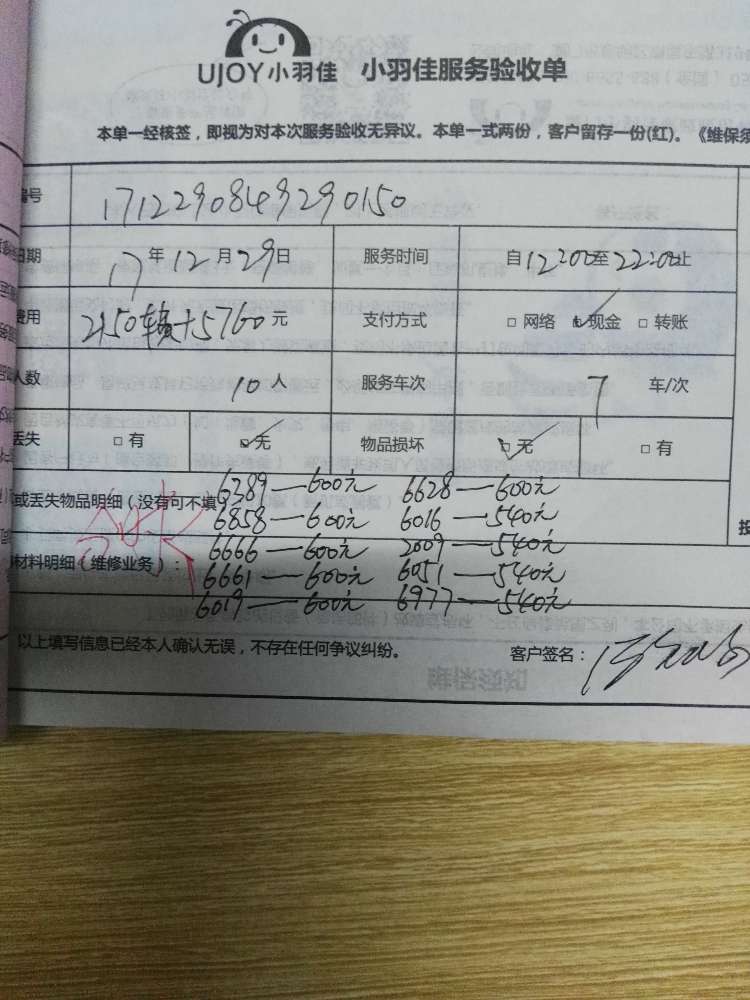 UJOY小羽佳 小羽佳服务验收单
本单一经核签，即视为对本次服务验收无异议。本单一式两份，客户留存一份(红)。《维保须
编号 1712290849290150
日期 17年12月29日 服务时间 自12:00至22:00止
费用 5760元 支付方式 □ 网络 ☑ 现金 □ 转账
人数 10人 服务车次 7 车/次
丢失 □ 有 ☑ 无 物品损坏 ☑ 无 □ 有
或丢失物品明细（没有可不填）
6289—600元 6628—600元
6858—600元 6016—540元
6666—600元 2009—540元
材料明细（维修业务）：
6661—600元 6051—540元
6019—600元 6977—540元
以上填写信息已经本人确认无误，不存在任何争议纠纷。 客户签名：